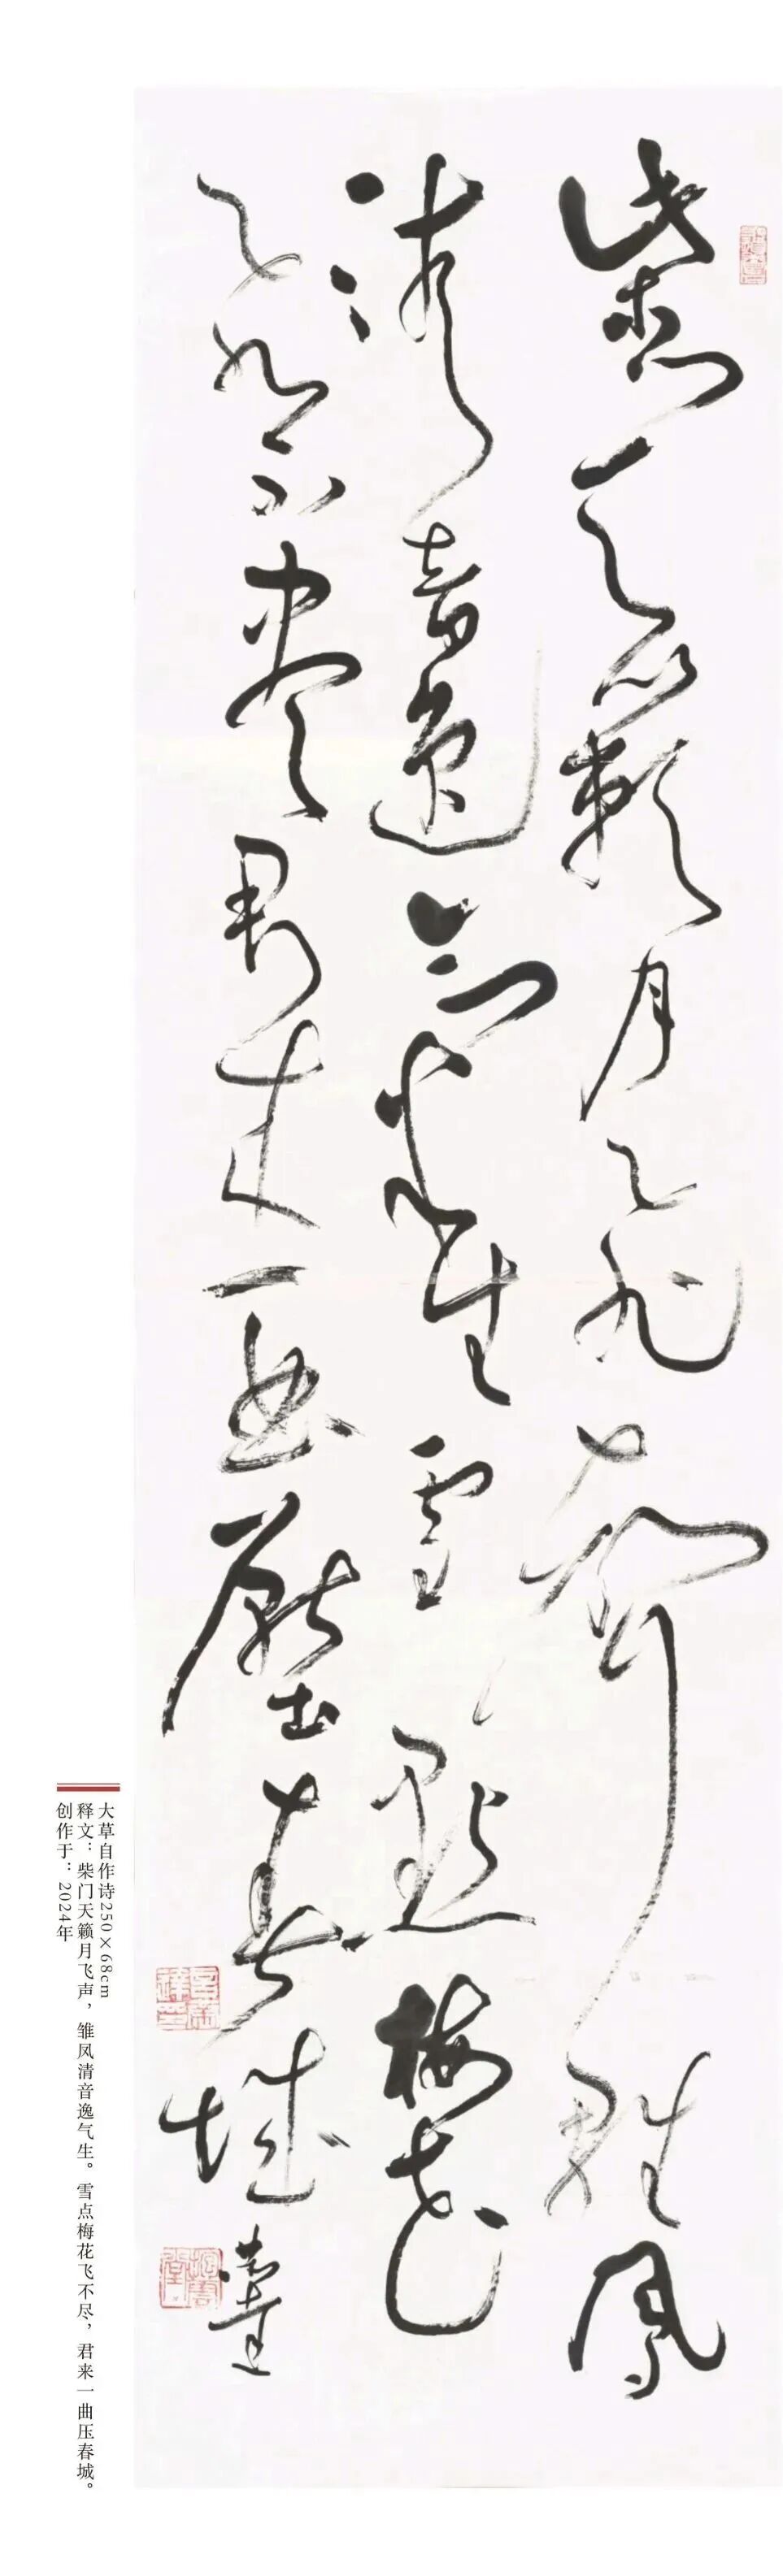 柴门天籁月飞声雏凤
清音逸气生雪点梅花
飞不尽君来一曲压春城
大草自作诗250×68cm
释文：柴门天籁月飞声，雏凤清音逸气生。雪点梅花飞不尽，君来一曲压春城。
创作于：2024年